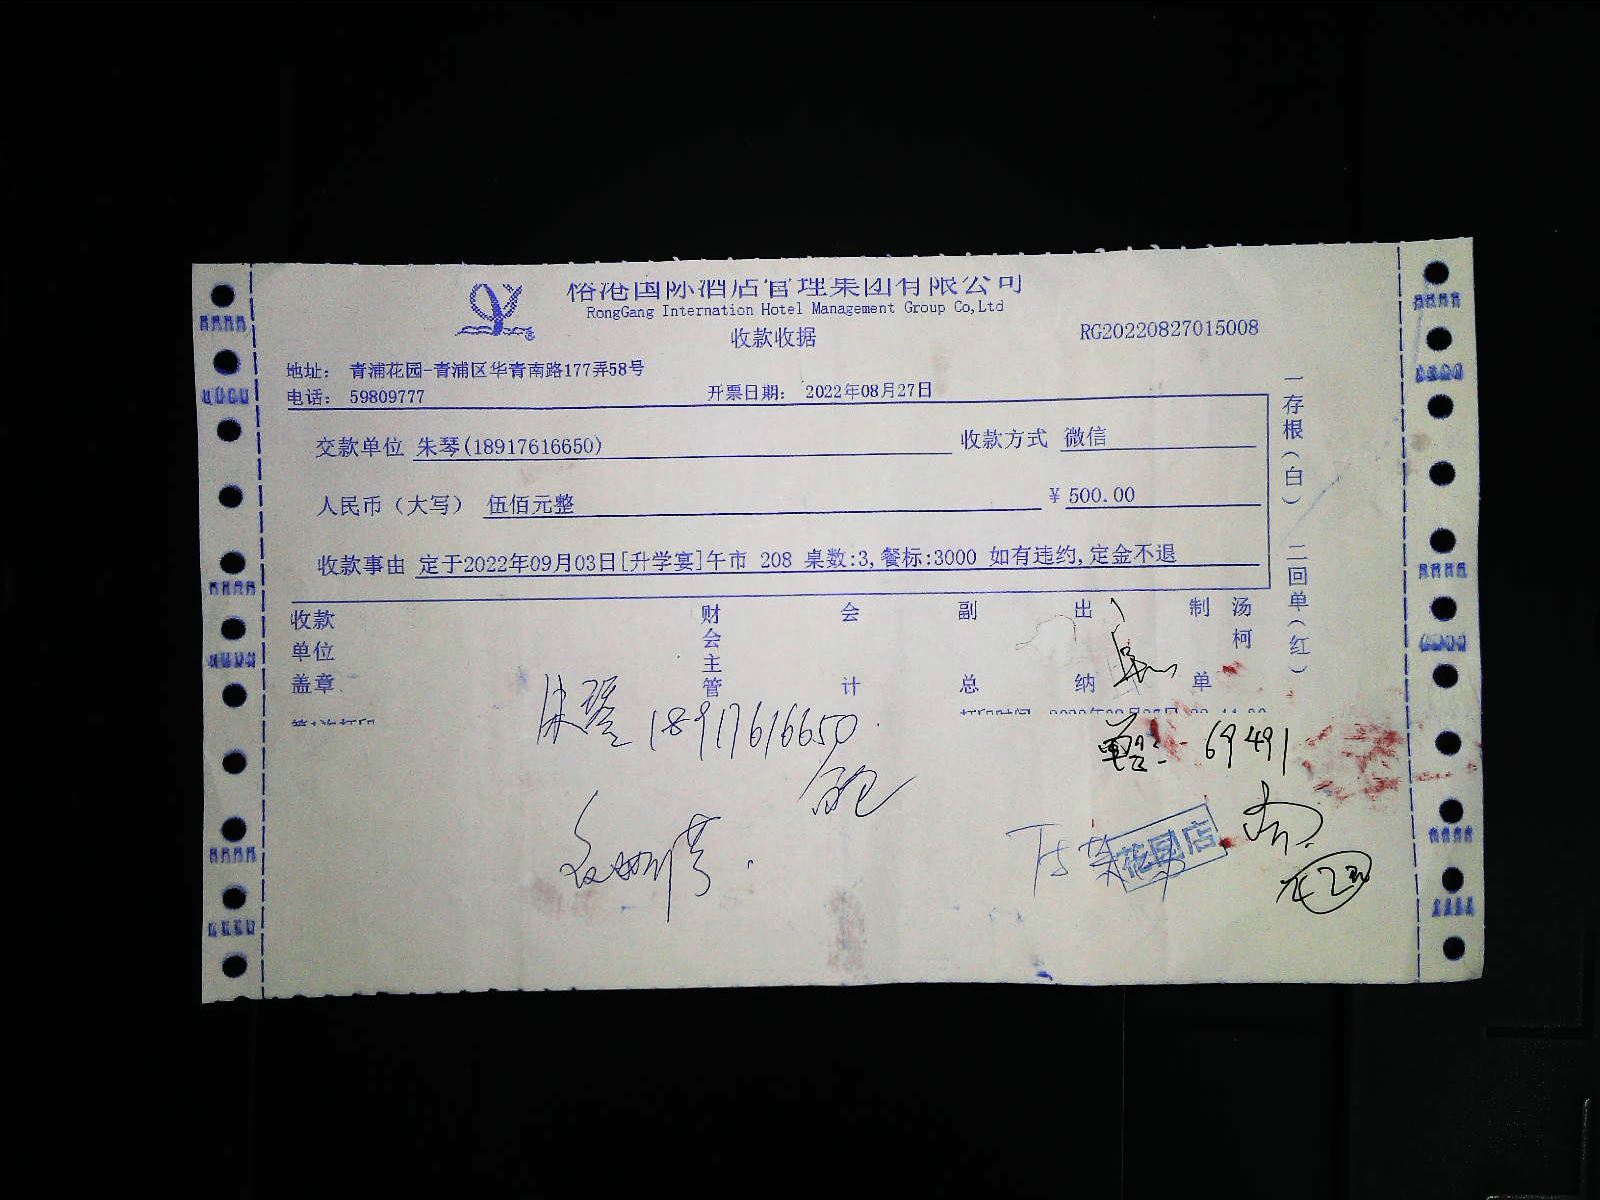 俗港国际酒店管理集团有限公司
RongGang Internation Hotel Management Group Co,Ltd
收款收据
RG20220827015008
地址： 青浦花园-青浦区华青南路177弄58号
电话： 59809777
开票日期： 2022年08月27日
交款单位 朱琴(18917616650)
收款方式 微信
人民币（大写） 伍佰元整
¥ 500.00
收款事由 定于2022年09月03日[升学宴]午市 208 桌数:3,餐标:3000 如有违约,定金不退
收款单位盖章
财会主管
会计
副总
出纳
制单
汤柯
一存根（白） 二回单（红）
朱琴 18917616650
69491
花园店